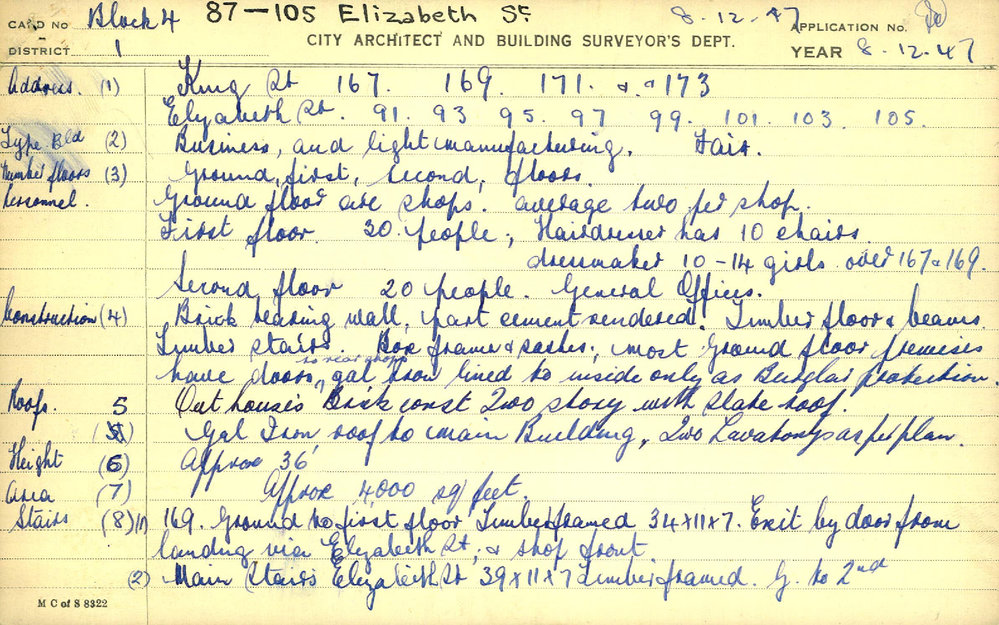 CARD No Block 4 87-105 Elizabeth St 8-12-47 APPLICATION No.
DISTRICT 1 CITY ARCHITECT AND BUILDING SURVEYOR'S DEPT. YEAR 8-12-47
Address. (1) King St 167. 169. 171. & 173
Elizabeth St. 91. 93 95. 97 99. 101. 103. 105.
Type Bld (2) Business, and light manufacturing. Fair.
Number floors (3) Ground, first, second, floors.
Personnel. Ground floor are shops. average two per shop.
First floor. 30 people; Hairdresser has 10 chairs.
dressmaker 10-14 girls over 167 & 169.
Second floor 20 people. General Offices.
Construction (4) Brick bearing wall, part cement rendered. Timber floor & beams.
Timber stairs. Box frame & sashes; most Ground floor premises
to rear shops
have doors, gal iron lined to inside only as Burglar protection.
Roofs. 5 Out houses Brick const Two story with slate roof.
Gal Iron roof to main Building, Two Lavatorys as per plan.
Height (6) Approx 36'
Area (7) Approx 4,000 sq feet.
Stairs (8) (1) 169. Ground to first floor Timber framed 34x11x7. Exit by door from
landing via Elizabeth St, & shop front
(2) Main Stairs Elizabeth St 39x11x7 Timber framed. G. to 2nd
M C of S 8322